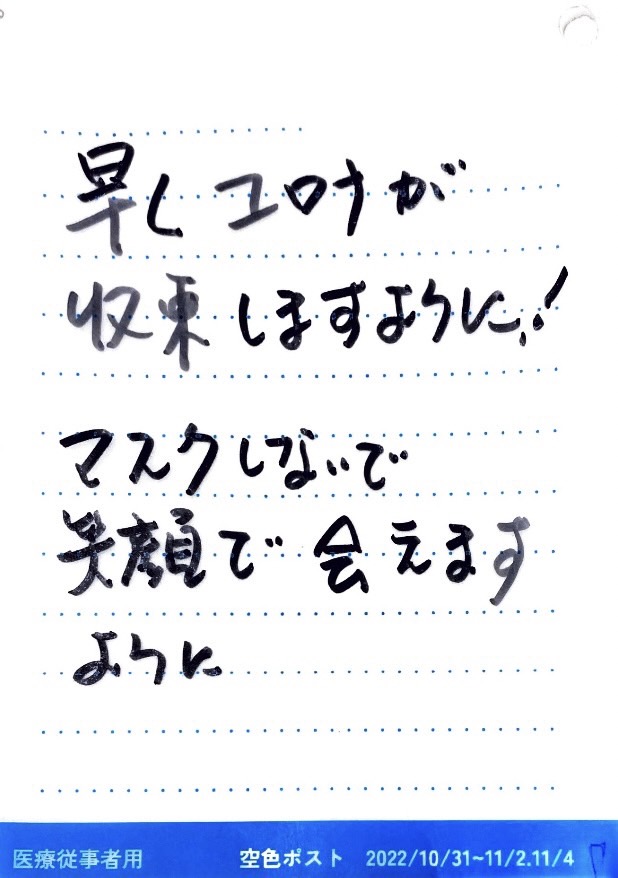 早くコロナが
収束しますように!
マスクしないで
笑顔で会えます
ように
医療従事者用 空色ポスト 2022/10/31~11/2.11/4